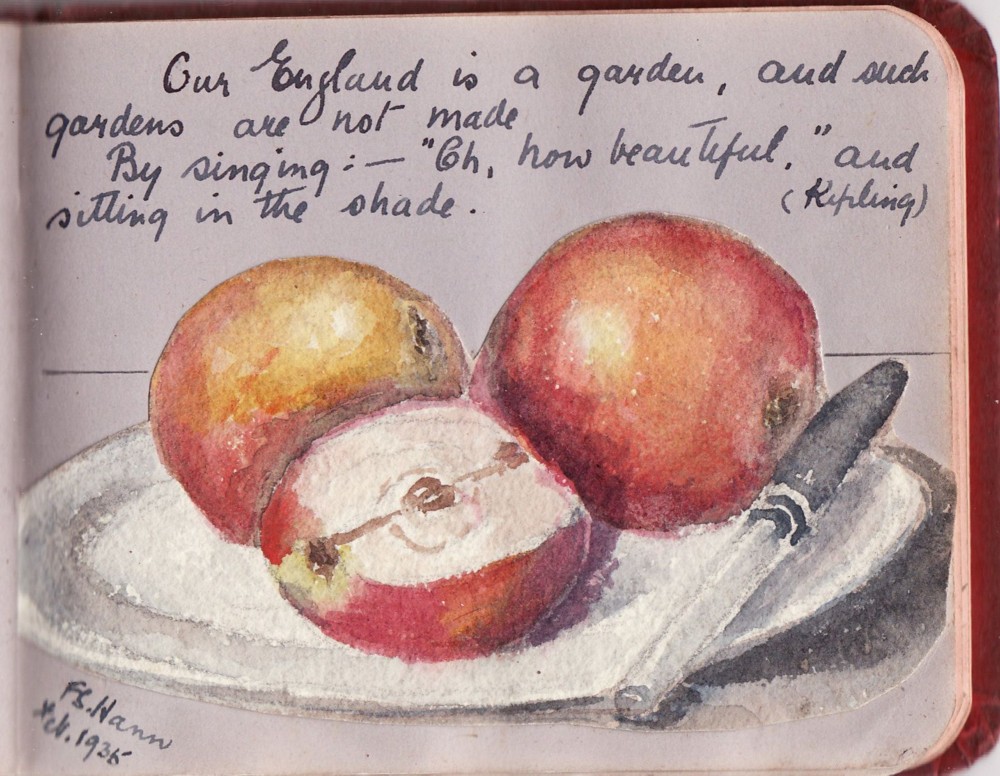 Our England is a garden, and such
gardens are not made
By singing:— "Oh, how beautiful," and
sitting in the shade.
(Kipling)
F.S. Hann
Feb. 1935